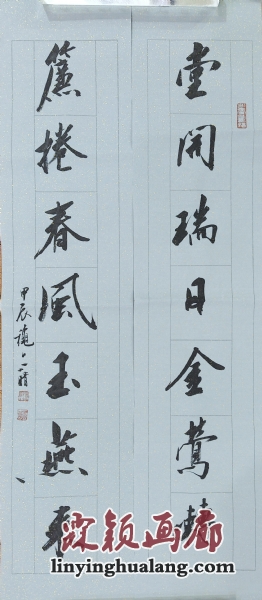 堂開瑞日金鶯
簾捲春風玉燕
甲辰
霖颖画廊
linyinghualang.com